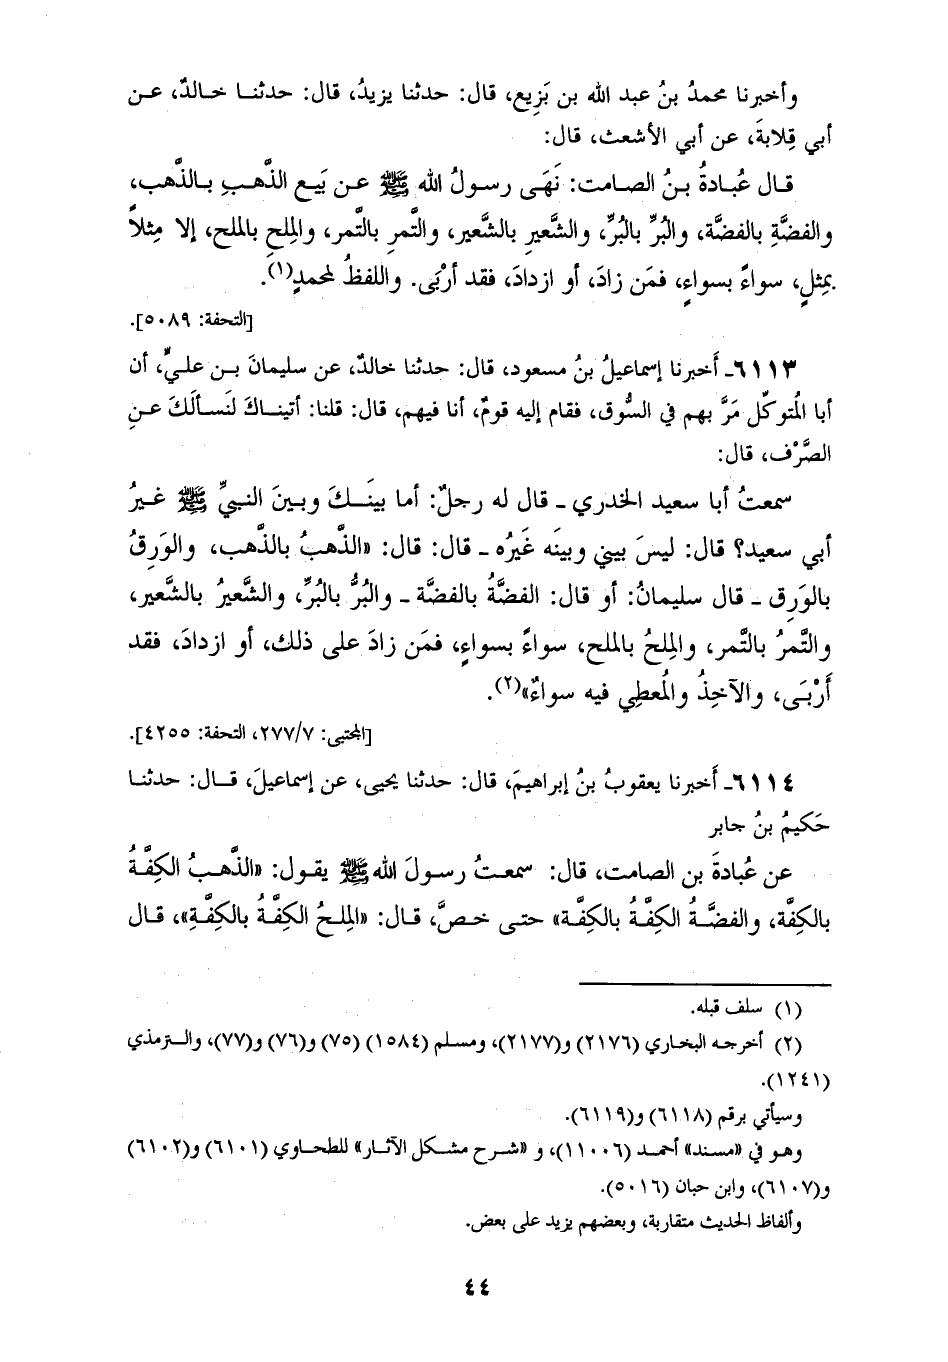 وأخبرنا محمدُ بنُ عبد الله بن بَزِيع، قال: حدثنا يزيدُ، قال: حدثنـا خـالدٌ، عـن
أبي قِلابةَ، عن أبي الأشعث، قال:
قـال عُبادةُ بـنُ الصـامت: نَهَى رسـولُ الله ﷺ عـن بَيـع الذَّهـبِ بـالذَّهب،
والفضَّةِ بالفضَّة، والبُرِّ بالبُرِّ، والشَّعيرِ بالشَّعير، والتَّمرِ بالتَّمر، والمِلحِ بالملح، إلا مِثلاً
بمِثلٍ، سواءً بسواءٍ، فمَن زادَ، أو ازدادَ، فقد أرْبَى. واللفظُ لمحمدٍ(١).
[التحفة: ٥٠٨٩].
٦١١٣ـ أَخبرنا إسماعيلُ بنُ مسعود، قال: حدثنا خالدٌ، عن سليمانَ بـن علـيٍّ، أن
أبا المُتوكِّل مَرَّ بهم في السُّوق، فقام إليه قومٌ، أنا فيهم، قال: قلنا: أتينـاكَ لنَسـألَكَ عـنِ
الصَّرْف، قال:
سمعتُ أبا سعيد الخدري ـ قال له رجلٌ: أما بينَـكَ وبـينَ النبيِّ ﷺ غـيرُ
أبي سعيد؟ قال: ليسَ بيني وبينَه غَيرُه ـ قال: قال: «الذَّهبُ بالذَّهب، والوَرِقُ
بالوَرِق ـ قال سليمانُ: أو قال: الفضَّةُ بالفضَّة ـ والبُرُّ بالبُرِّ، والشَّعيرُ بالشَّعير،
والتَّمرُ بالتَّمر، والمِلحُ بالملح، سواءً بسواءٍ، فمَن زادَ على ذلك، أو ازدادَ، فقد
أَرْبَـى، والآخِذُ والمُعطِي فيه سواءٌ»(٢).
[المجتبى: ٢٧٧/٧، التحفة: ٤٢٥٥].
٦١١٤ـ أَخبرنا يعقوبُ بنُ إبراهيمَ، قال: حدثنا يحيى، عن إسماعيلَ، قـال: حدثنـا
حَكيمُ بنُ جابر
عن عُبادةَ بن الصامت، قال: سمعـتُ رسـولَ الله ﷺ يقـول: «الذَّهـبُ الكِفَّـةُ
بالكِفَّة، والفضَّـةُ الكِفَّةُ بالكِفَّة» حتـى خـصَّ، قـال: «المِلـحُ الكِفَّـةُ بالكِفَّـةِ»، قـال
(١) سلف قبله.
(٢) أخرجه البخاري (٢١٧٦) و(٢١٧٧)، ومسلم (١٥٨٤) (٧٥) و(٧٦) و(٧٧)، والـترمذي
(١٢٤١).
وسيأتي برقم (٦١١٨) و(٦١١٩).
وهـو في «مسـند» أحمـد (١١٠٠٦)، و «شـرح مشـكل الآثـار» للطحـاوي (٦١٠١) و(٦١٠٢)
و(٦١٠٧)، وابن حبان (٥٠١٦).
وألفاظ الحديث متقاربة، وبعضهم يزيد على بعض.
٤٤